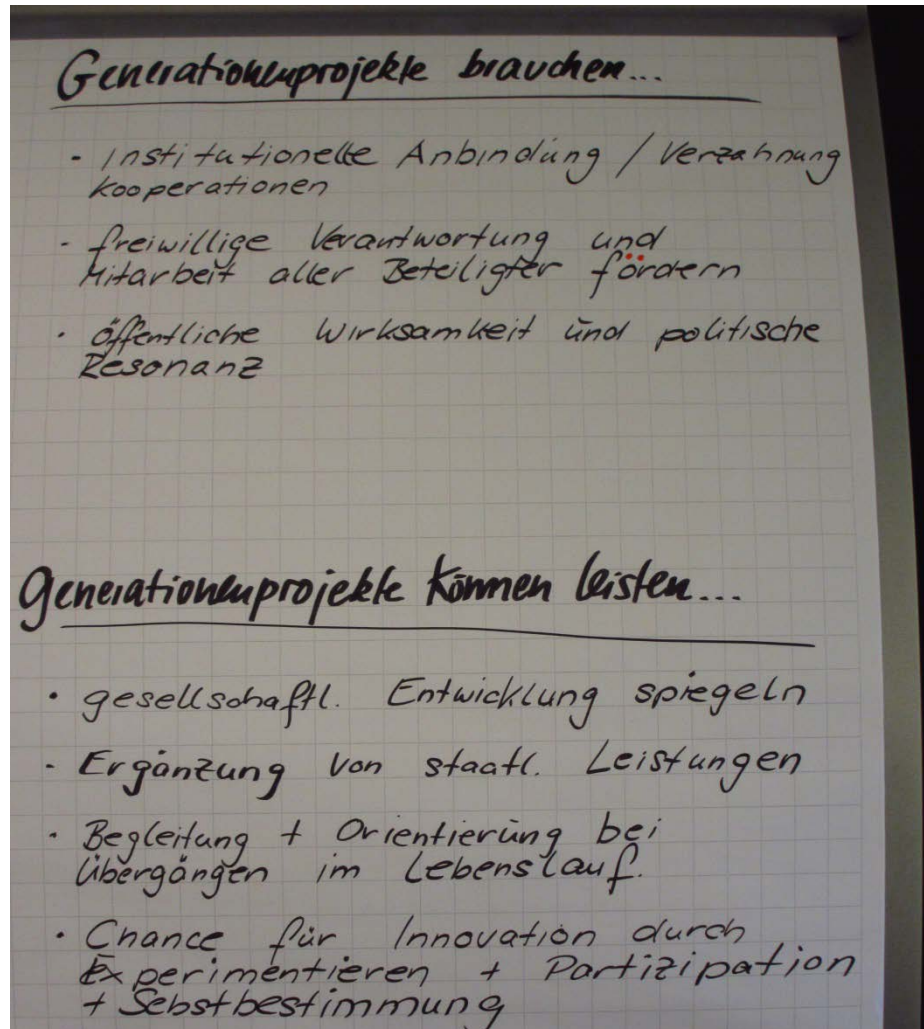 Generationenprojekte brauchen...
- Institutionelle Anbindung / Verzahnung
kooperationen
- freiwillige Verantwortung und
Mitarbeit aller Beteiligter fördern
· öffentliche Wirksamkeit und politische
Resonanz
Generationenprojekte können leisten...
· gesellschaftl. Entwicklung spiegeln
- Ergänzung von staatl. Leistungen
· Begleitung + Orientierung bei
Übergängen im Lebenslauf.
· Chance für Innovation durch
Experimentieren + Partizipation
+ Sebstbestimmung